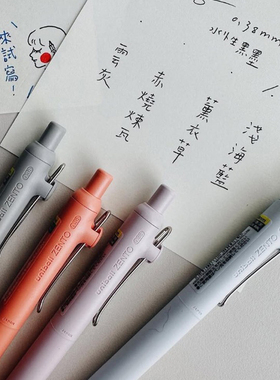 來試寫!
0.38mm
淺海藍
薰衣草
赤燒煉瓦
雲灰
uniball ZENTO
uniball ZENTO
uniball ZENTO
uniball ZENTO